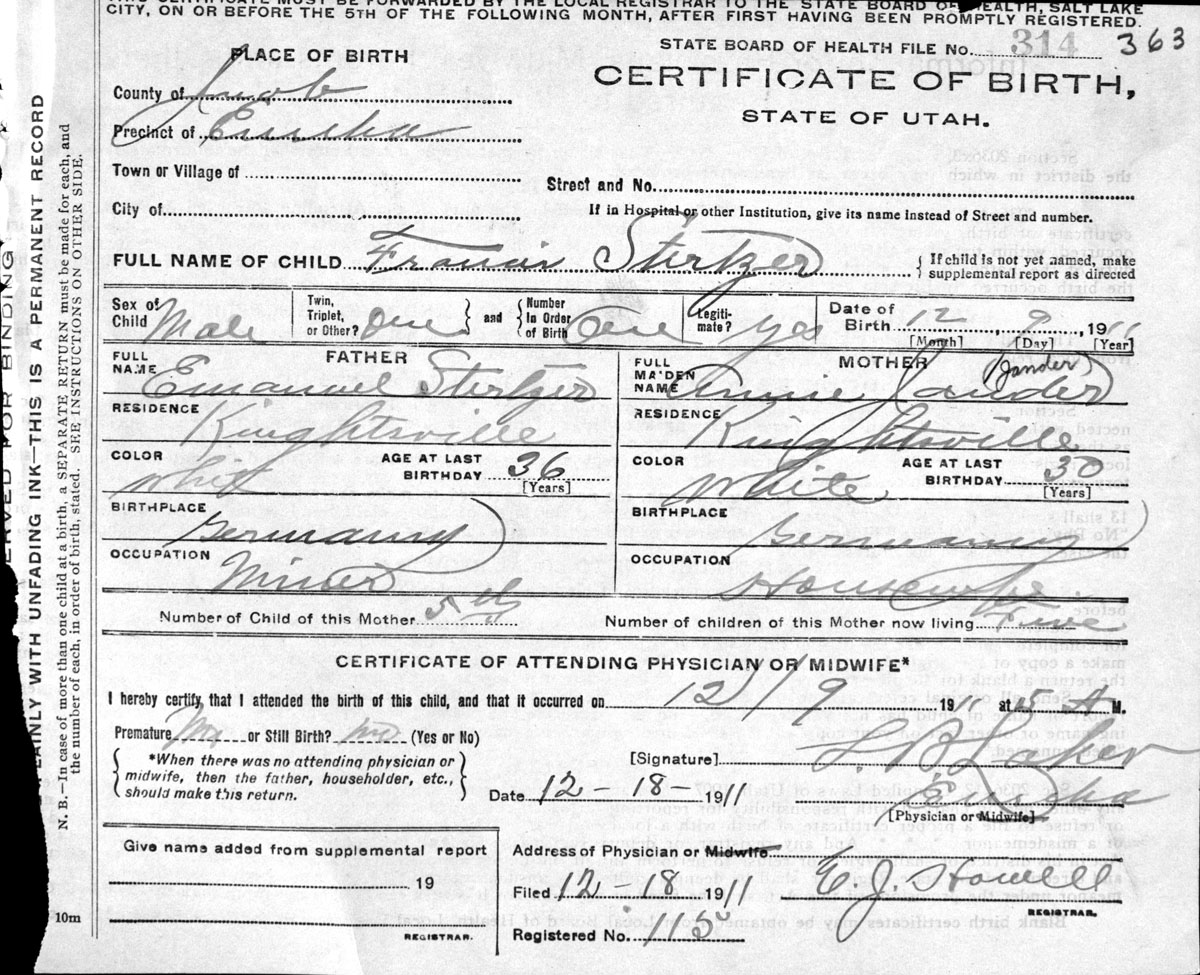 THIS CERTIFICATE MUST BE FORWARDED BY THE LOCAL REGISTRAR TO THE STATE BOARD OF HEALTH, SALT LAKE
CITY, ON OR BEFORE THE 5TH OF THE FOLLOWING MONTH, AFTER FIRST HAVING BEEN PROMPTLY REGISTERED.
STATE BOARD OF HEALTH FILE NO. 314 363
PLACE OF BIRTH
CERTIFICATE OF BIRTH,
STATE OF UTAH.
County of Juab
Precinct of Eureka
Town or Village of
Street and No.
City of
If in Hospital or other Institution, give its name instead of Street and number.
FULL NAME OF CHILD Francis Stertzer
If child is not yet named, make
supplemental report as directed
Sex of Child Male
Twin, Triplet, or Other? One
and
Number In Order of Birth One
Legitimate? Yes
Date of Birth 12 9, 1911
[Month] [Day] [Year]
FATHER
FULL NAME Emanuel Stertzer
RESIDENCE Knightsville
COLOR White
AGE AT LAST BIRTHDAY 36
[Years]
BIRTHPLACE Germany
OCCUPATION Miner
MOTHER
(Jander)
FULL MAIDEN NAME Annie Jander
RESIDENCE Knightsville
COLOR White
AGE AT LAST BIRTHDAY 30
[Years]
BIRTHPLACE Germany
OCCUPATION Housewife
Number of Child of this Mother 5th
Number of children of this Mother now living Five
CERTIFICATE OF ATTENDING PHYSICIAN OR MIDWIFE*
I hereby certify, that I attended the birth of this child, and that it occurred on 12/9 1911 at 5 A M.
Premature No or Still Birth? No (Yes or No)
*When there was no attending physician or
midwife, then the father, householder, etc.,
should make this return.
[Signature]
Date 12-18-1911
Eureka
[Physician or Midwife]
Give name added from supplemental report
19
REGISTRAR.
10m
Address of Physician or Midwife.
Filed 12-18 1911
E. J. Howell
REGISTRAR.
Registered No. 115
RESERVED FOR BINDING
PLAINLY WITH UNFADING INK—THIS IS A PERMANENT RECORD
N. B.—In case of more than one child at a birth, a SEPARATE RETURN must be made for each, and
the number of each, in order of birth, stated. SEE INSTRUCTIONS ON OTHER SIDE.